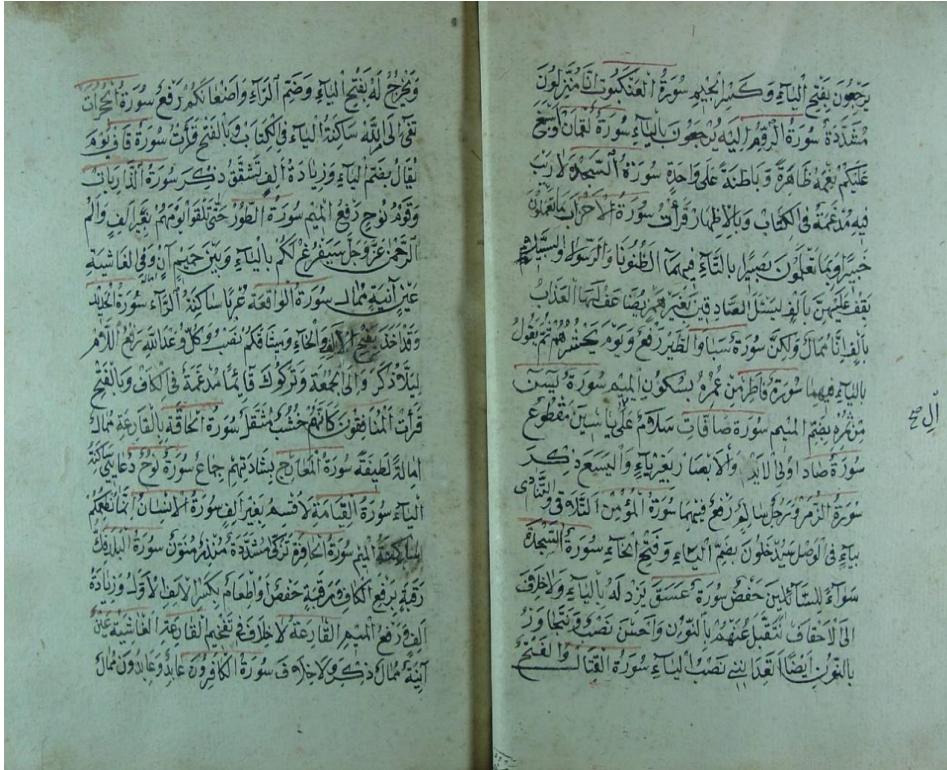 يرجعون بفتح الياء وكسر الجيم سورة العنكبوت انا منزلون
مشددة سورة الرقم اليه يرجعون بالياء سورة لقمان واسبغ
عليكم نعمة ظاهرة وباطنة على واحدة سورة السجدة لا ريب
فيه مدغمة فى الكتاب وبالاظهار قرأت سورة الاحزاب بما تعملون
خبيرا وبما تعملون بصيرا بالتاء فيهما الظنونا والرسولا والسبيلا
يقف عليهن بالف ليسئل الصادقين بغير همز يضاعف لها العذاب
بالف انا ممال ولكن سورة سبا والطير رفع ويوم يحشرهم ثم يقول
بالياء فيهما سورة فاطر من عمره بسكون الميم سورة يسن
من ثمره بضم الميم سورة صافات سلام على ياسين مقطوع
سورة صاد اولى الايد والابصار بغير ياء واليسع ذكر
سورة الزمر ورجل سالم رفع فيهما سورة المؤمن التلاق والتنادى
بياء فى الوصل سيدخلون بضم الياء وفتح الخاء سورة السجدة
سواء للسائلين خفض سورة عسق يزد له بالياء ولا خلاف
الى الاحقاف نتقبل عنهم بالنون واحسن نصب ونتجاوز
بالنون ايضا اتعداننى نصب الياء سورة القتال والفتح
ويخرج له بفتح الياء وضم الراء واضغانكم رفع سورة الحجرات
تفئ الى امر الله ساكنة الياء فى الكتاب وبالفتح قرأت سورة ق ويوم
يقال بضم الياء وزيادة الف تشقق ذكر سورة الذاريات
وقوم نوح رفع الميم سورة الطور حتى تلقوا يومهم بغير الف والم
الرحمن عز وجل سيفرغ لكم بالياء وبين حميم آن وفى الغاشية
عين آنية ممال سورة الواقعة عربا ساكنة الراء سورة الحديد
وقد اخذ بفتح والخاء وميثاقكم نصب وكل وعد الله اللام
ليلا ذكر والى الجمعة وتركوك قايما مدغمة فى الكاف وبالفتح
قرأت المنافقون كانهم خشب مثقل سورة الحاقة بالقارعة ممال
امالة لطيفة سورة المعارج بشهادتهم جماع سورة نوح دعايى ساكنة
الياء سورة القيامة لاقسم بغير الف سورة الانسان انما نطعمكم
ساكنة الميم سورة الحافرة تزكى مشددة منذر منون سورة البلد فك
رقبة برفع الكاف ورقبة خفض واطعام بكسر الالف الاول وزيادة
الف ورفع الميم القارعة لا خلاف فى تفخيم القارعة الغاشية عين
آنية ممال ذكر ولا خلاف سورة الكافرون عابد وعابدون ممال